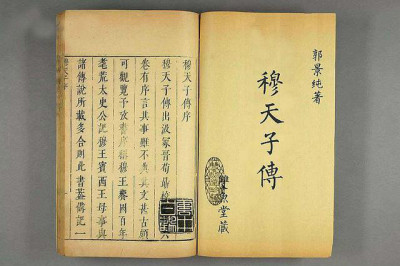 郭景純著
穆天子傳
堂藏
穆天子傳序
穆天子傳出汲冢晉荀勗校六
卷有序言其事雖不典其文甚古頗
可觀覽予攷書序稱穆王享國百年
耄荒太史公記穆王賓西王母事與
諸傳說所載多合則此書蓋備記一